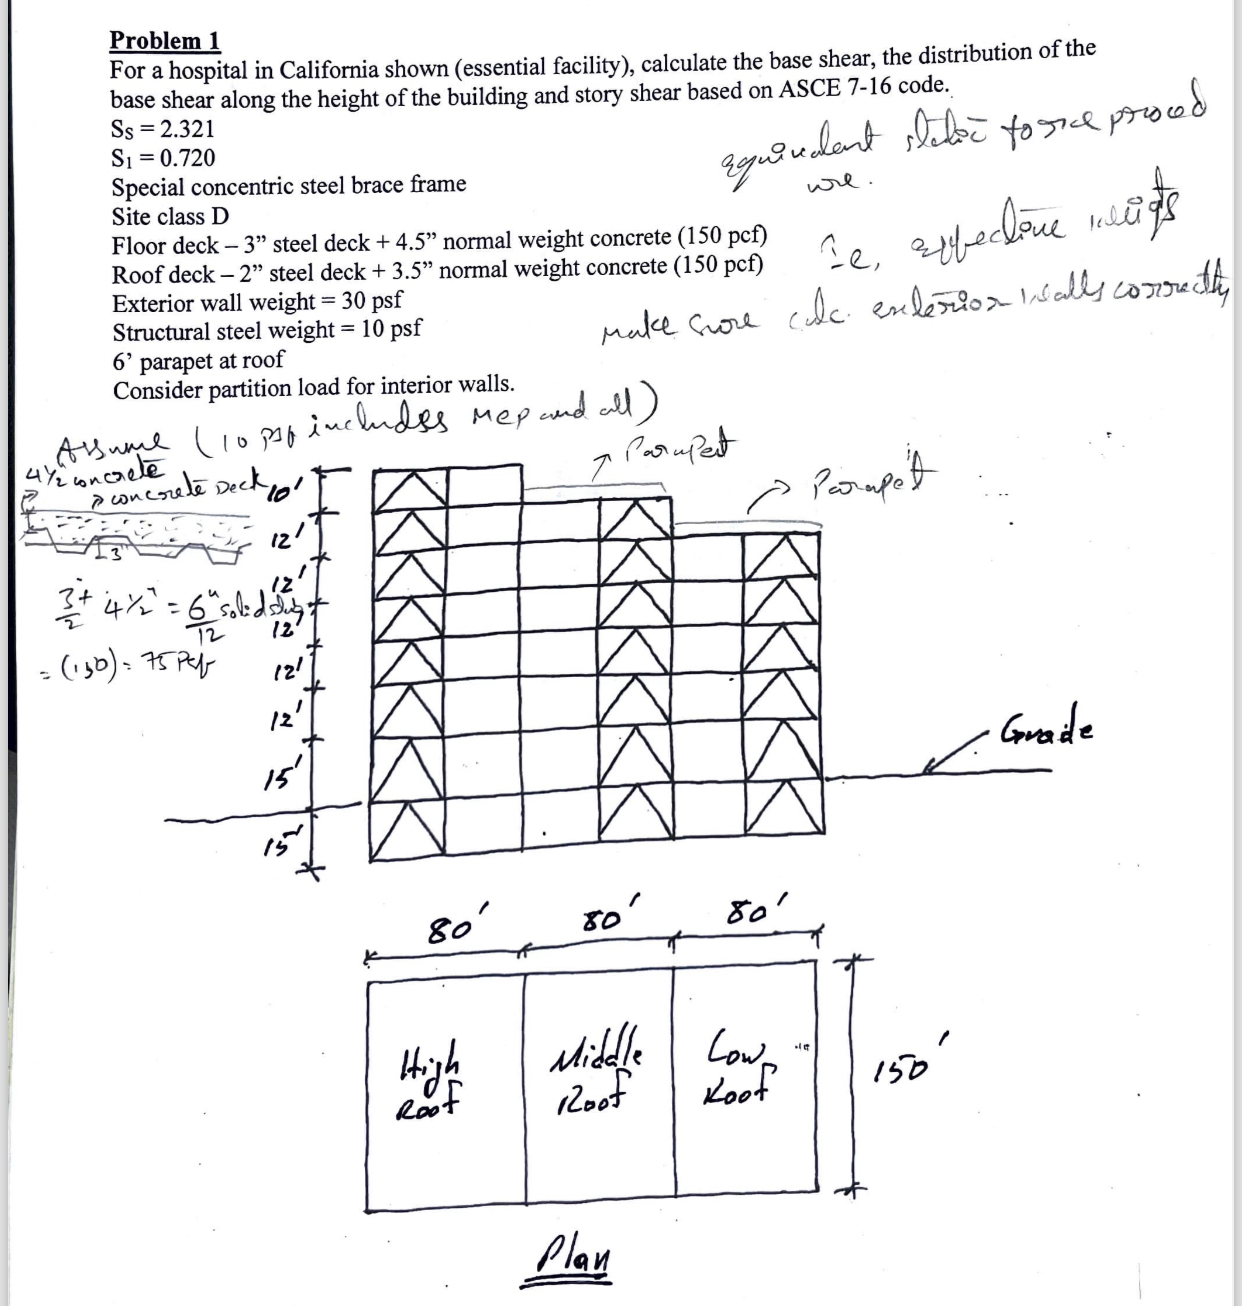 Problem 1
For a hospital in California shown (essential facility), calculate the base shear, the distribution of the
base shear along the height of the building and story shear based on ASCE 7-16 code.
SS = 2.321
S1 = 0.720
Special concentric steel brace frame
Site class D
Floor deck – 3” steel deck + 4.5” normal weight concrete (150 pcf)
Roof deck – 2” steel deck + 3.5” normal weight concrete (150 pcf)
Exterior wall weight = 30 psf
Structural steel weight = 10 psf
6’ parapet at roof
Consider partition load for interior walls.
equivalent static force proced
ure.
i.e, effective weights
Make sure calc. exterior walls correctly
Assume (10 psf includes Mep and all)
4½" concrete
concrete Deck
3"
3/2 + 4½" = 6" solid slab
12
= (150) = 75 Pcf
Parapet
Parapet
10'
12'
12'
12'
12'
12'
15'
15'
Grade
80' 80' 80'
High Roof
Middle Roof
Low Roof
150'
Plan